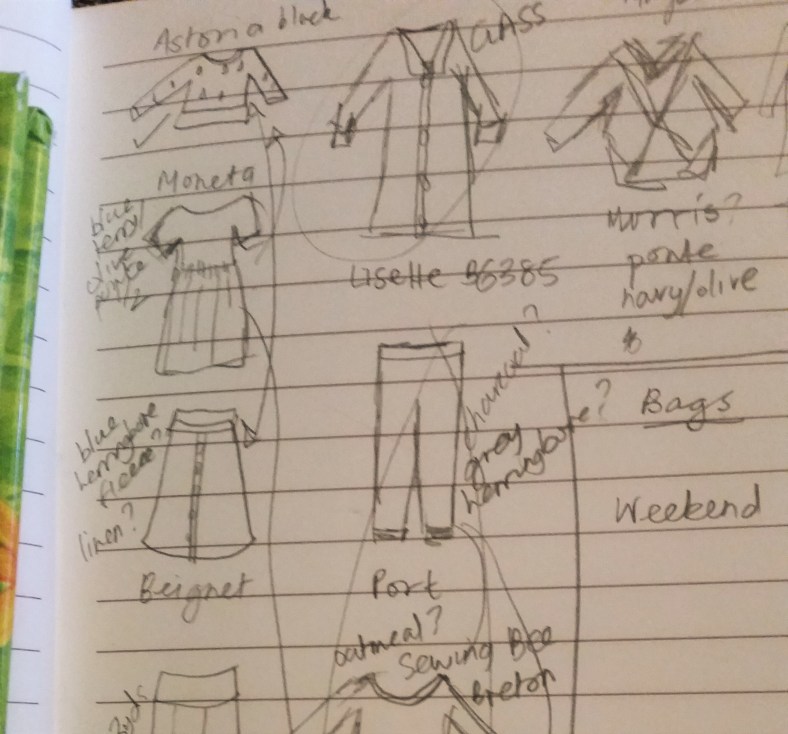 Astoria black
GLASS
Moneta
blue
terry
olive
Lisette B6385
Morris?
ponte
navy/olive
charcoal?
grey
herringbone?
Bags
Weekend
blue
herringbone
fleece?
linen?
Beignet
Port
oatmeal?
Sewing Bee
Breton
2yds